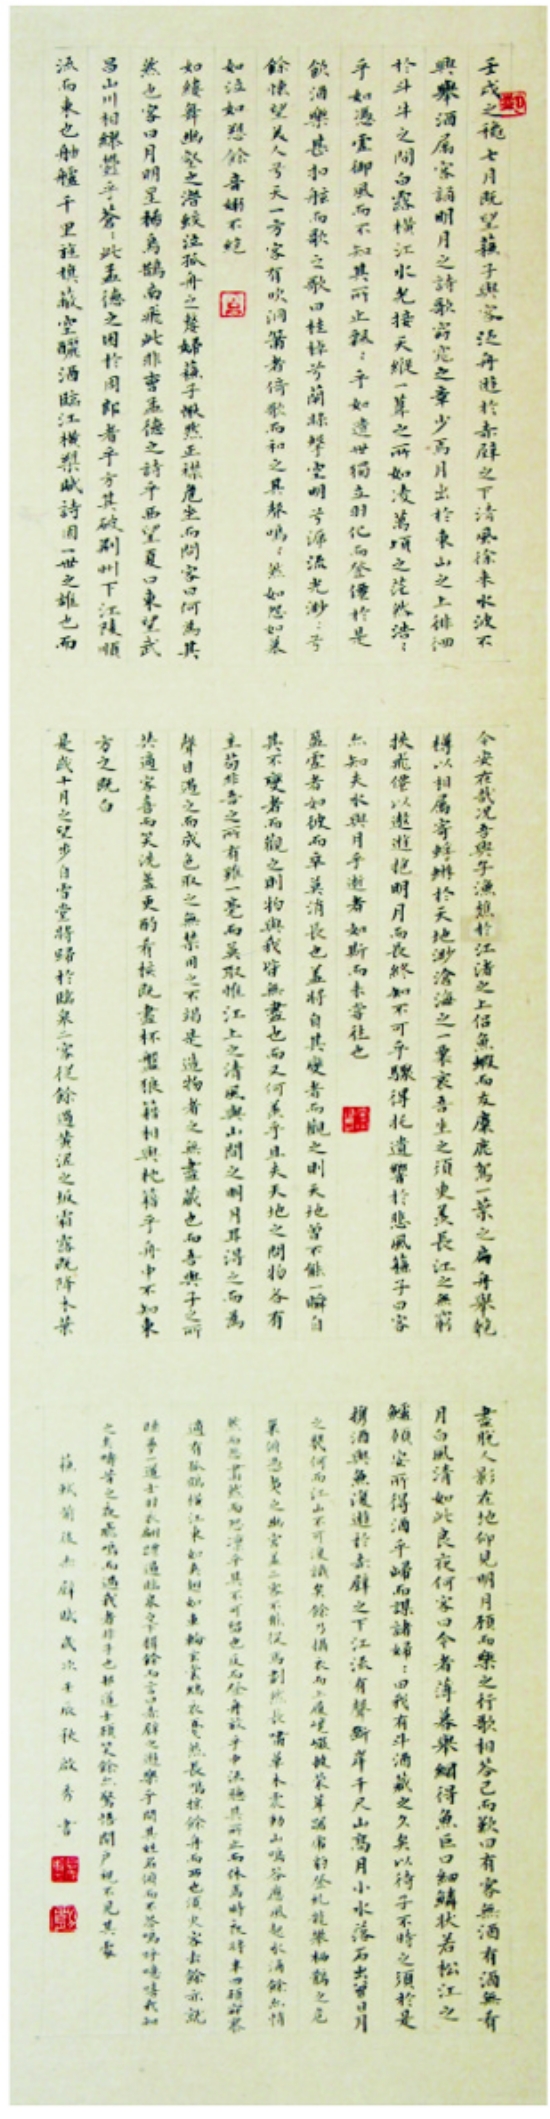 壬戌之穐七月既望蘇子與客泛舟遊於赤壁之下清風徐來水波不
興舉酒屬客誦明月之詩歌窈窕之章少焉月出於東山之上徘徊
於斗牛之間白露橫江水光接天縱一葦之所如凌萬頃之茫然浩:
乎如憑虛御風而不知其所止飄:乎如遺世獨立羽化而登僊於是
飲酒樂甚扣舷而歌之歌曰桂棹兮蘭槳擊空明兮泝流光渺:兮
餘懷望美人兮天一方客有吹洞簫者倚歌而和之其聲嗚:然如怨如慕
如泣如愬餘音嫋不絕
如縷舞幽壑之潛蛟泣孤舟之嫠婦蘇子愀然正襟危坐而問客曰何為其
然也客曰月明星稀烏鵲南飛此非曹孟德之詩乎西望夏口東望武
昌山川相繆鬱乎蒼:此孟德之困於周郎者乎方其破荊州下江陵順
流而東也舳艫千里旌旗蔽空釃酒臨江橫槊賦詩固一世之雄也而
今安在哉況吾與子漁樵於江渚之上侶魚蝦而友麋鹿駕一葉之扁舟舉匏
樽以相屬寄蜉蝣於天地渺滄海之一粟哀吾生之須臾羨長江之無窮
挾飛僊以遨遊抱明月而長終知不可乎驟得托遺響於悲風蘇子曰客
亦知夫水與月乎逝者如斯而未嘗往也
盈虛者如彼而卒莫消長也蓋將自其變者而觀之則天地曾不能一瞬自
其不變者而觀之則物與我皆無盡也而又何羨乎且夫天地之間物各有
主苟非吾之所有雖一毫而莫取惟江上之清風與山間之明月耳得之而為
聲目遇之而成色取之無禁用之不竭是造物者之無盡藏也而吾與子之所
共適客喜而笑洗盞更酌肴核既盡杯盤狼藉相與枕藉乎舟中不知東
方之既白
是歲十月之望步自雪堂將歸於臨皋二客從餘過黃泥之坂霜露既降木葉
盡脫人影在地仰見明月顧而樂之行歌相答已而歎曰有客無酒有酒無肴
月白風清如此良夜何客曰今者薄暮舉網得魚巨口細鱗狀若松江之
鱸顧安所得酒乎歸而謀諸婦:曰我有斗酒藏之久矣以待子不時之須於是
攜酒與魚復遊於赤壁之下江流有聲斷岸千尺山高月小水落石出曾日月
之幾何而江山不可復識矣餘乃攝衣而上履巉巖披蒙茸踞虎豹登虬龍攀棲鶻之危
巢俯馮夷之幽宮蓋二客不能從焉劃然長嘯草木震動山鳴谷應風起水涌餘亦悄
然而悲肅然而恐凜乎其不可留也反而登舟放乎中流聽其所止而休焉時夜將半四顧寂寥
適有孤鶴橫江東來翅如車輪玄裳縞衣戛然長鳴掠餘舟而西也須臾客去餘亦就
睡夢一道士羽衣翩躚過臨皋之下揖餘而言曰赤壁之遊樂乎問其姓名俯而不答嗚呼噫嘻我知
之矣疇昔之夜飛鳴而過我者非子也耶道士顧笑餘亦驚悟開戶視不見其處
蘇軾前後赤壁賦歲次壬辰秋啟秀書